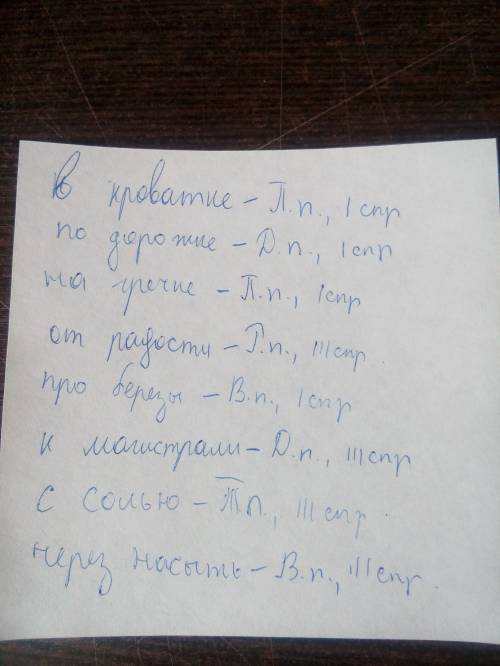 В кроватке - П.п., I спр
по дорожке - Д.п., I спр
на гречке - П.п., I спр
от радости - Р.п., III спр.
про березы - В.п., I спр
к магистрали - Д.п., III спр
с солью - Тп., III спр.
через насыпь - В.п., III спр.